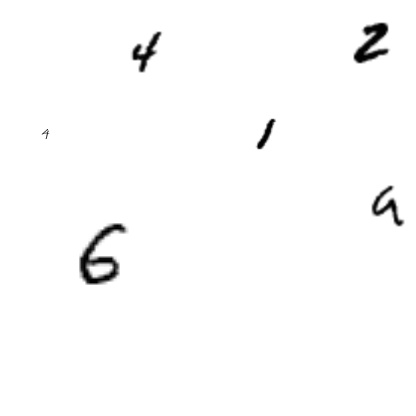 4 2
4 1
9
6